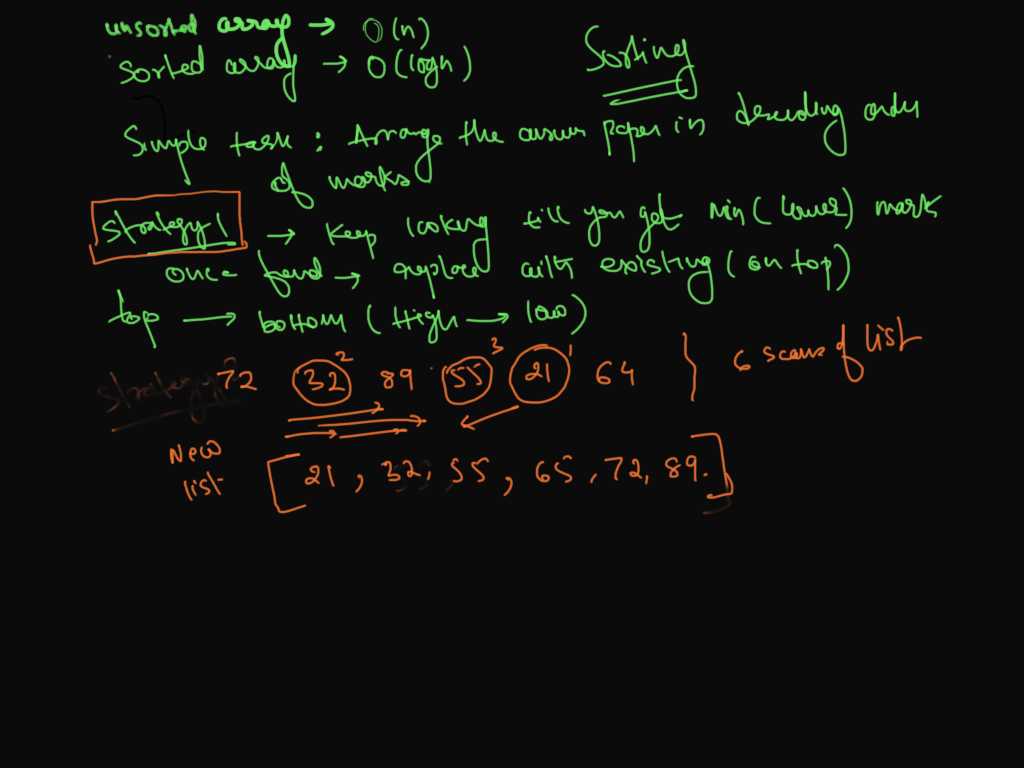 unsorted array → O(n)
Sorted array → O(logn)
Sorting
Simple task : Arrange the answer paper in descending order
of marks
Strategy 1 → Keep looking till you get Min (lower) mark
once found → replace with existing (on top)
top → bottom (High → low)
Strategy 2
72 32 2 89 55 3 21 1 64 } 6 scans of list
New
list
[ 21 , 32, 55 , 65 , 72, 89. ]